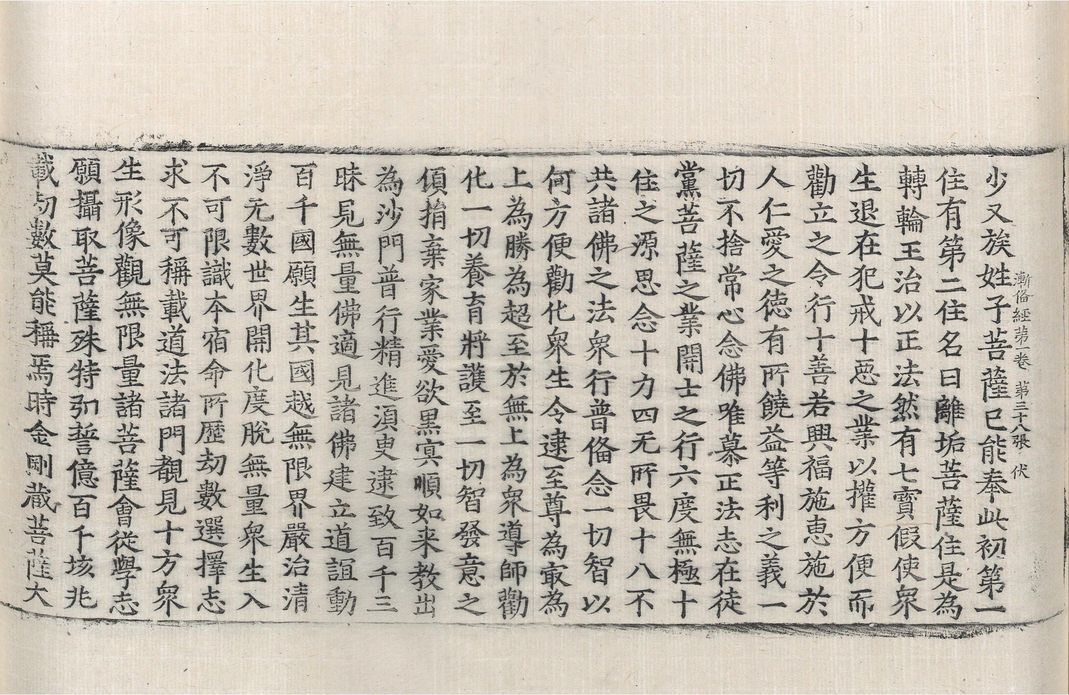 少又族姓子菩薩已能奉此初第一
漸俻經第一卷 第三十八張 伏
住有第二住名曰離垢菩薩住是為
轉輪王治以正法然有七寳假使衆
生退在犯戒十惡之業以擢方便而
勸立之令行十善若興福施恵施於
人仁愛之徳有所饒益等利之義一
切不捨常心念佛唯慕正法志在徒
黨菩薩之業開士之行六度無極十
住之源思念十力四无所畏十八不
共諸佛之法衆行普俻念一切智以
何方便勸化衆生令逮至尊為㝡為
上為勝為超至於無上為衆導師勸
化一切養育將護至一切智發意之
傾捐棄家業愛欲黒㝠順如来教出
為沙門普行精進湏臾逮致百千三
昧見無量佛適見諸佛建立道誼動
百千國願生其國越無限界嚴治清
淨无數世界開化度脫無量衆生入
不可限識本宿命所歴劫數選擇志
求不可稱載道法諸門覩見十方衆
生形像觀無限量諸菩薩會從學志
願攝取菩薩殊特弘誓億百千垓兆
載劫數莫能稱焉時金剛蔵菩薩大